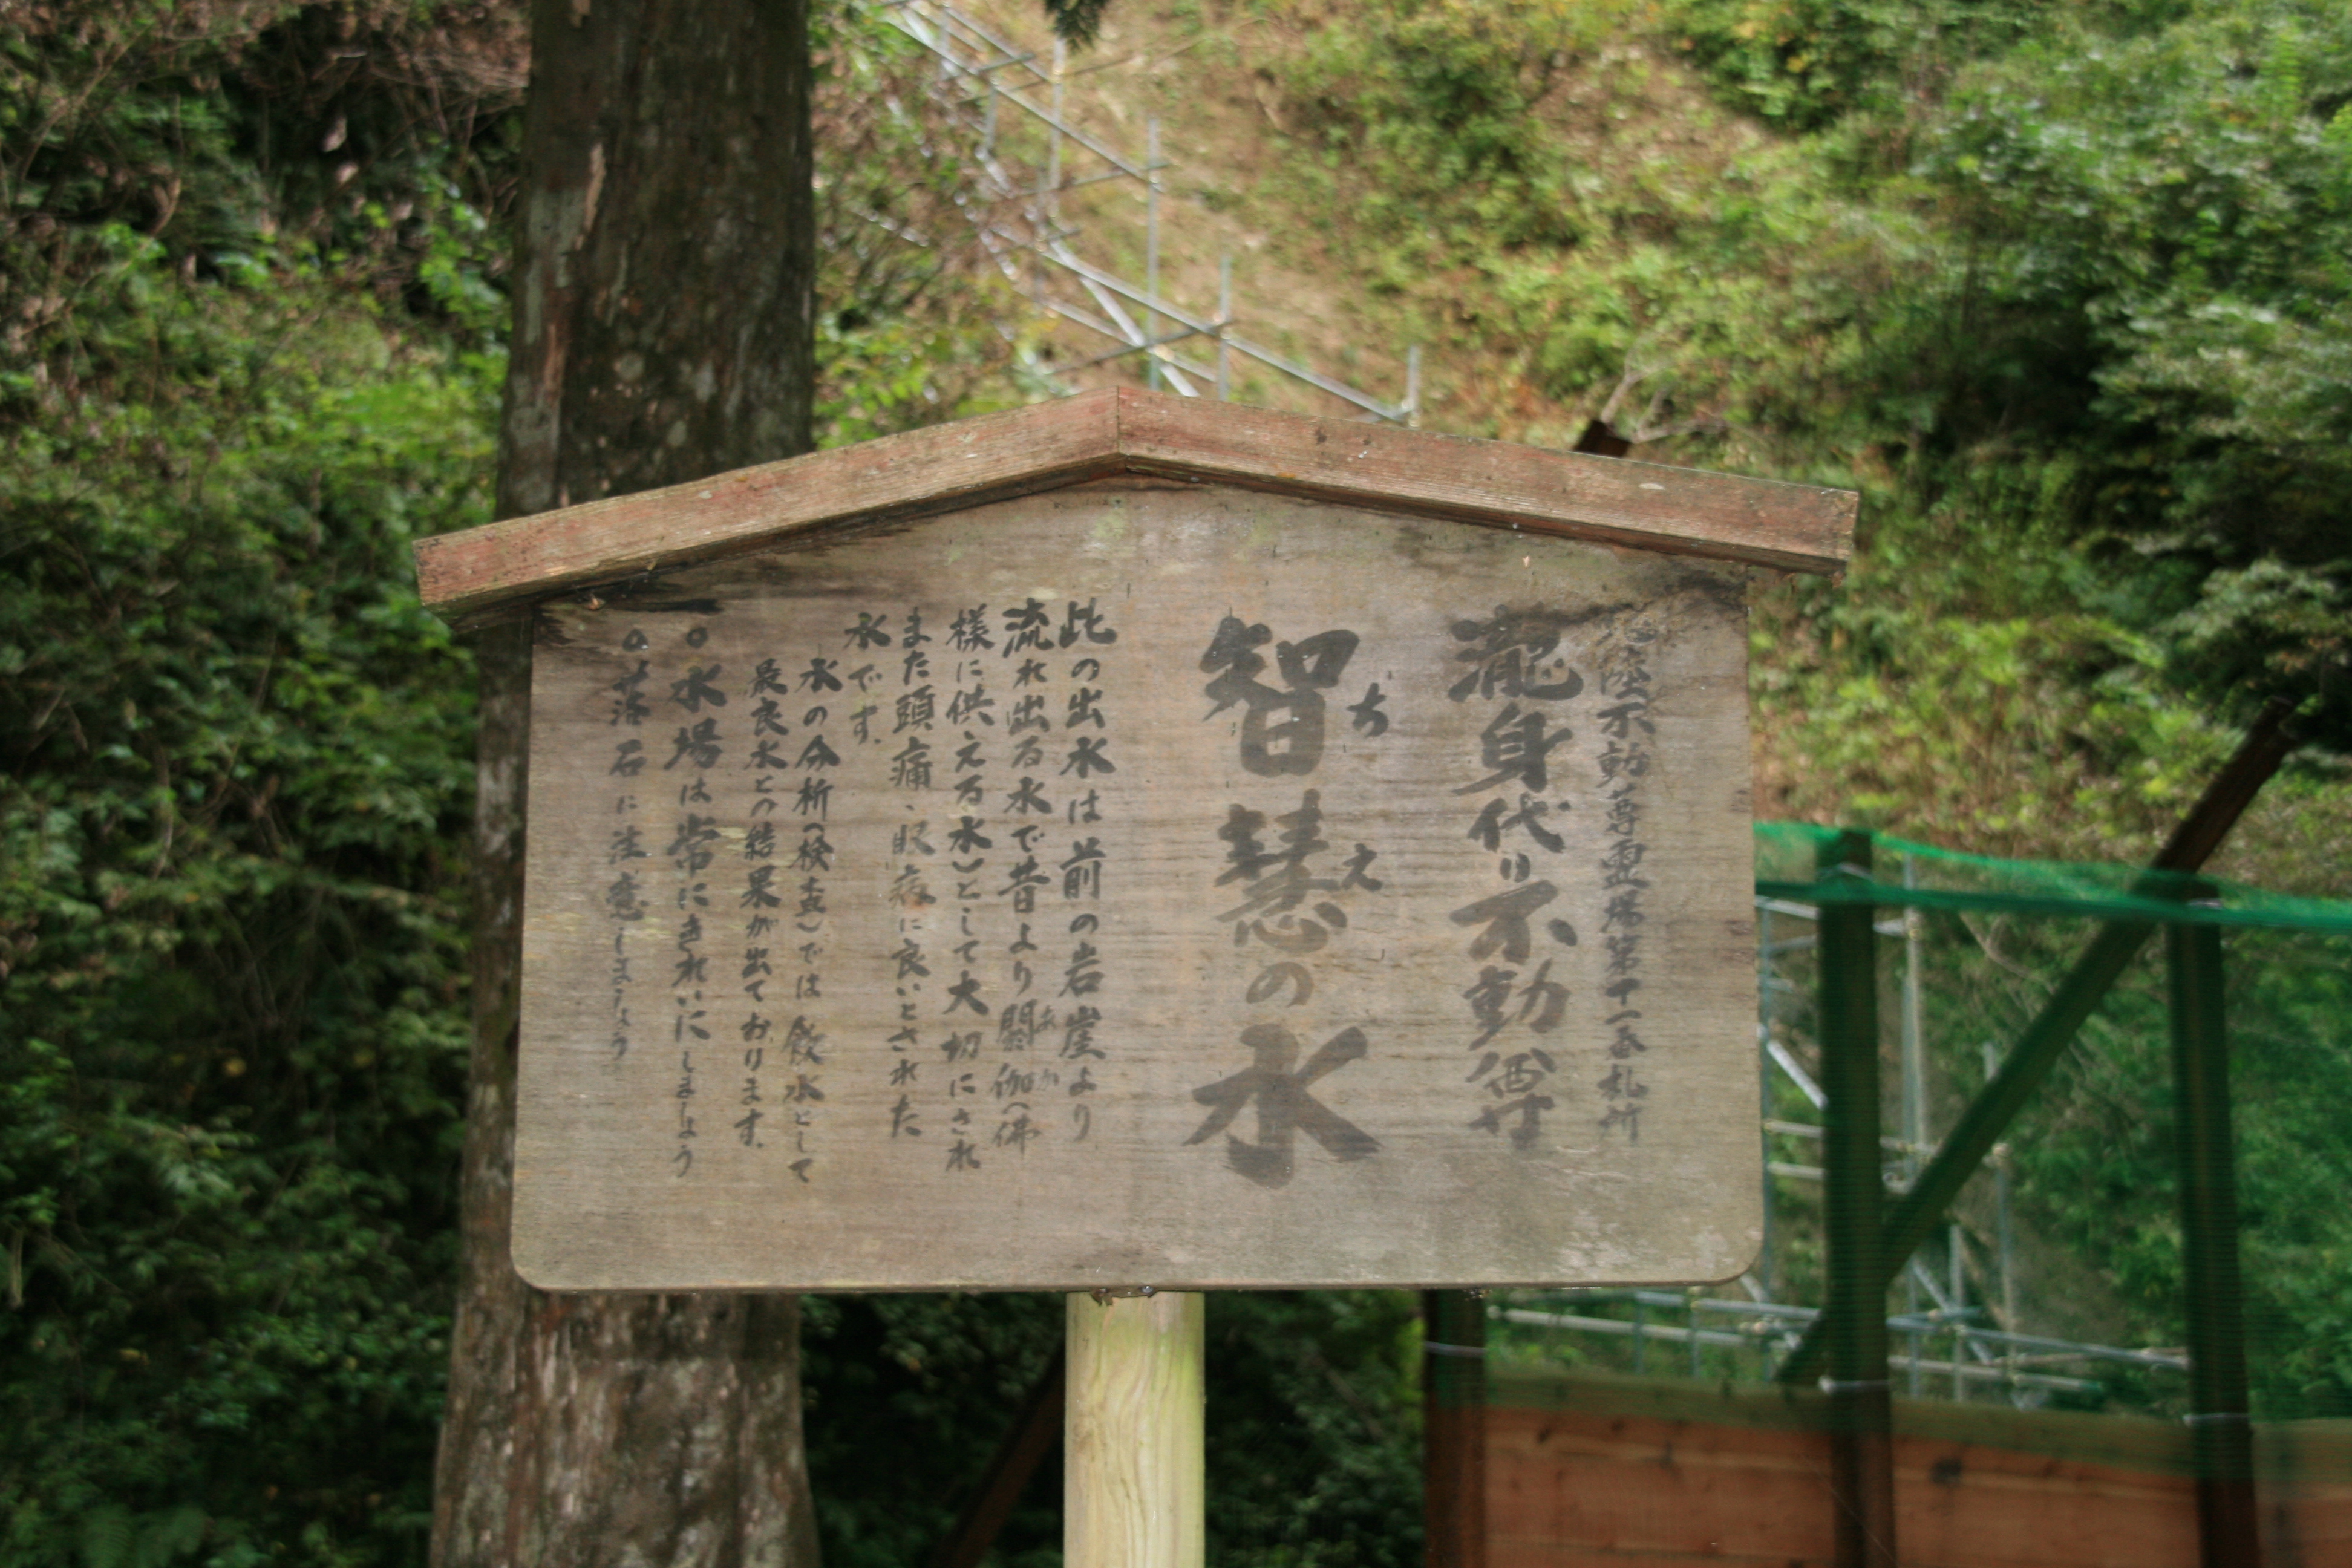 北陸不動尊霊場第十一番札所
瀧身代り不動尊
智慧の水
ちえ
此の出水は前の岩崖より
流れ出る水で昔より閼伽(佛
あか
様に供える水)として大切にされ
また頭痛、眼病に良いとされた
水です。
水の分析(検査)では飲水として
最良水との結果が出ております。
○水場は常にきれいにしましょう
○落石に注意しましょう